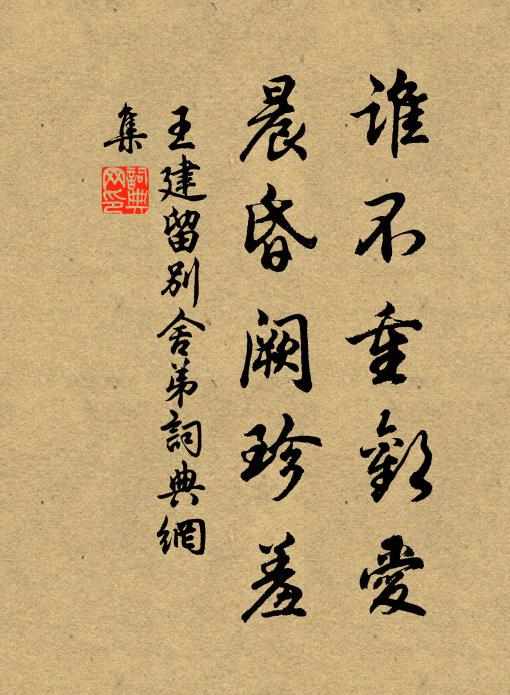 谁不重歡愛
晨昏阙珍羞
王建留别舍弟詞典網
集
詞典网印